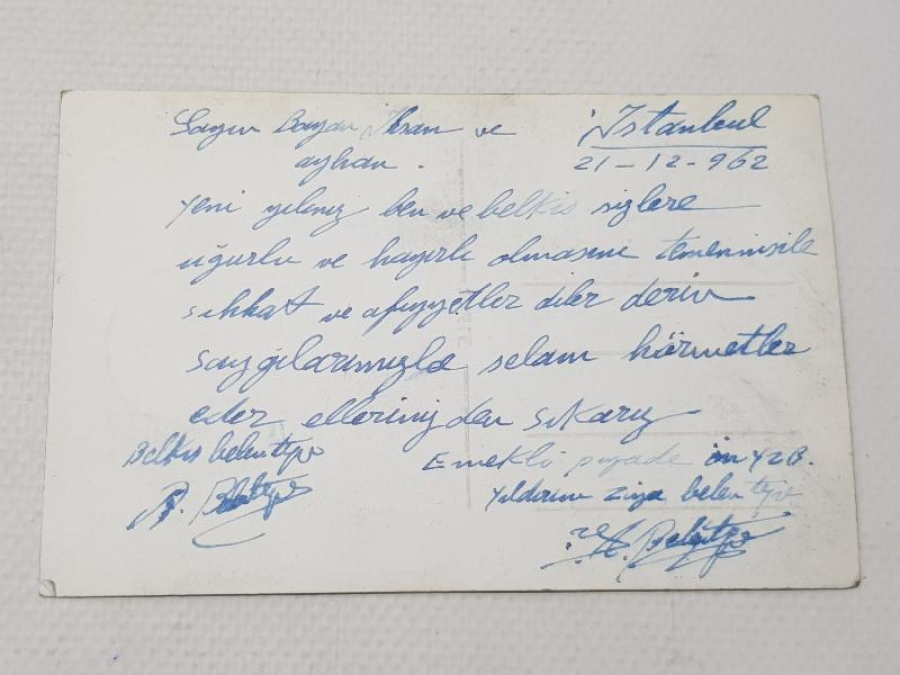 Sayın Bayan İhsan ve
ayhan.
İstanbul
21-12-962
yeni yılınız ben ve belkis sizlere
uğurlu ve hayırlı olmasını temennisile
sıhhat ve afiyyetler diler derin
saygılarımızla selam hürmetler
eder ellerinizden sıkarız
Belkis belentepe
B. Belentepe
Emekli piyade ön yzb.
yıldırım ziya belentepe